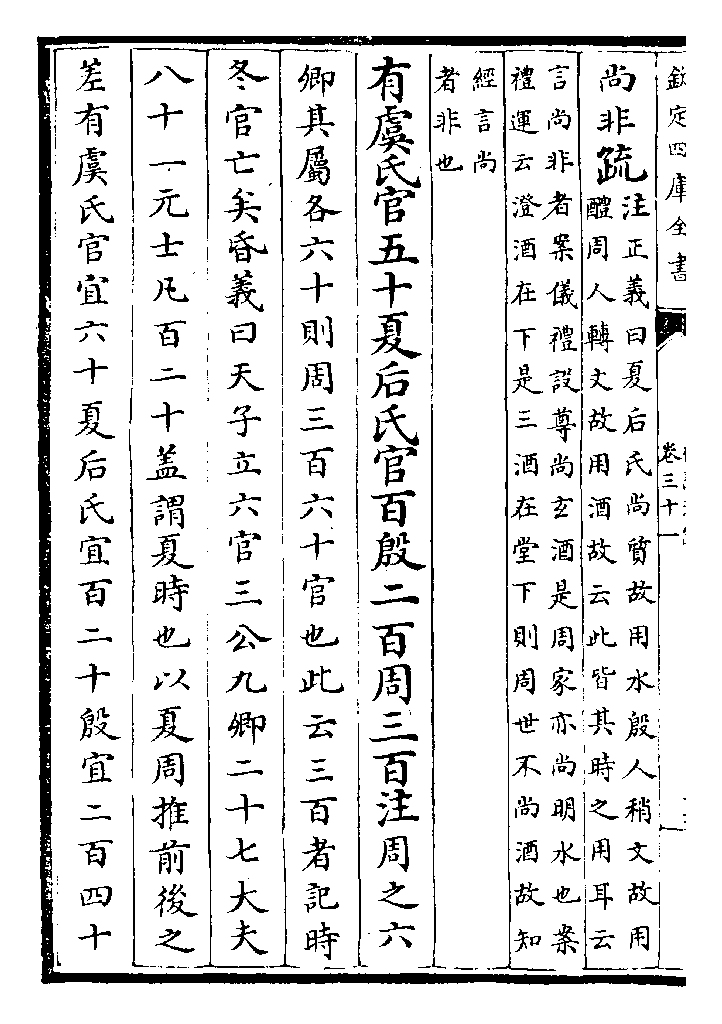 欽定四庫全書
卷三十一
尚非疏
注正義曰夏后氏尚質故用水殷人稍文故用
醴周人轉文故用酒故云此皆其時之用耳云
言尚非者案儀禮設尊尚玄酒是周家亦尚明水也案
禮運云澄酒在下是三酒在堂下則周世不尚酒故知
經言尚
者非也
有虞氏官五十夏后氏官百殷二百周三百注周之六
卿其屬各六十則周三百六十官也此云三百者記時
冬官亡矣昏義曰天子立六官三公九卿二十七大夫
八十一元士凡百二十盖謂夏時也以夏周推前後之
差有虞氏官宜六十夏后氏宜百二十殷宜二百四十